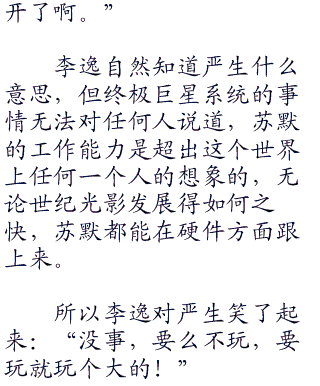 开了啊。”
李逸自然知道严生什么
意思，但终极巨星系统的事
情无法对任何人说道，苏默
的工作能力是超出这个世界
上任何一个人的想象的，无
论世纪光影发展得如何之
快，苏默都能在硬件方面跟
上来。
所以李逸对严生笑了起
来：“没事，要么不玩，要
玩就玩个大的！”